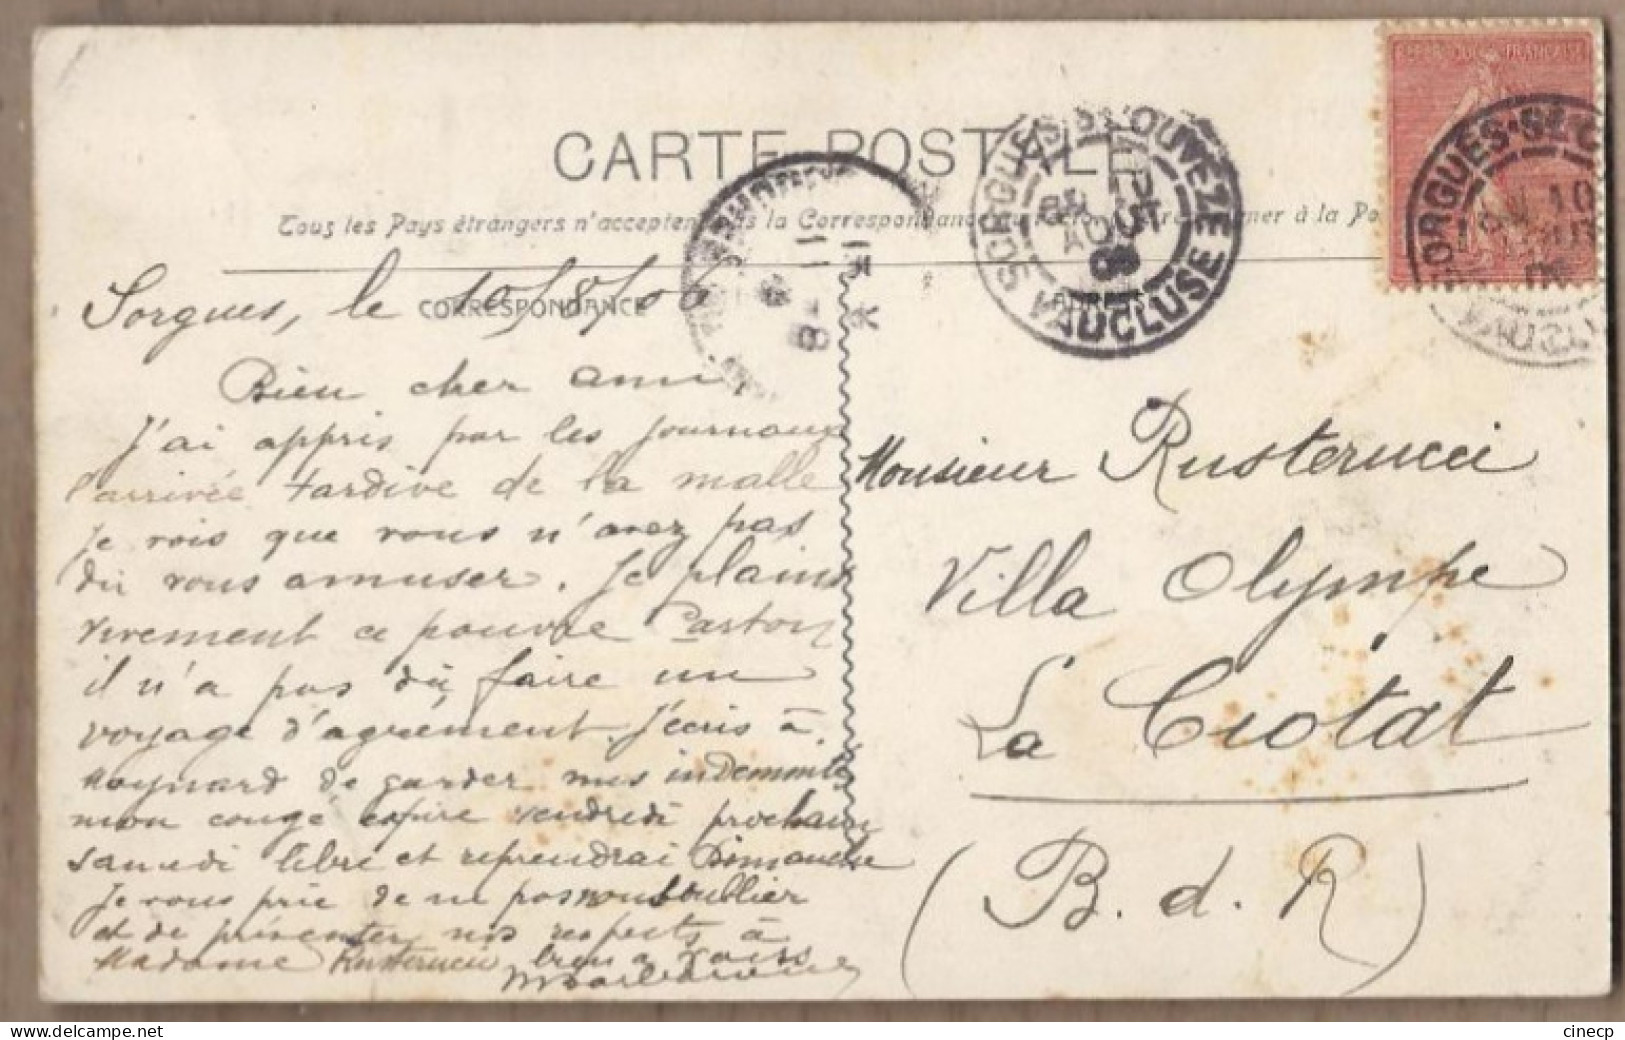 CARTE POSTALE
Tous les Pays étrangers n'acceptent pas la Correspondance au recto
à la Po
CORRESPONDANCE
SORGUES-S-L'OUVÈZE
VAUCLUSE
AOUT
06
REPUBLIQUE FRANÇAISE
SORGUES-S-L'O
10
VAUCL
Sorgues, le 10/8/06
Bien cher ami,
J'ai appris par les journaux
l'arrivée tardive de la malle
Je vois que vous n'avez pas
dû vous amuser. Je plains
vivement ce pauvre Gaston
il n'a pas dû faire un
voyage d'agrément. J'écris à
Maynard de garder mes indemnités
mon congé expire vendredi prochain
samedi libre et reprendrai Dimanche
Je vous prie de ne pas nous oublier
et de présenter nos respects à
Madame Rusterucci bien à vous
Monsieur Rusterucci
Villa Olympe
La Ciotat
(B. d. R)
cinecp